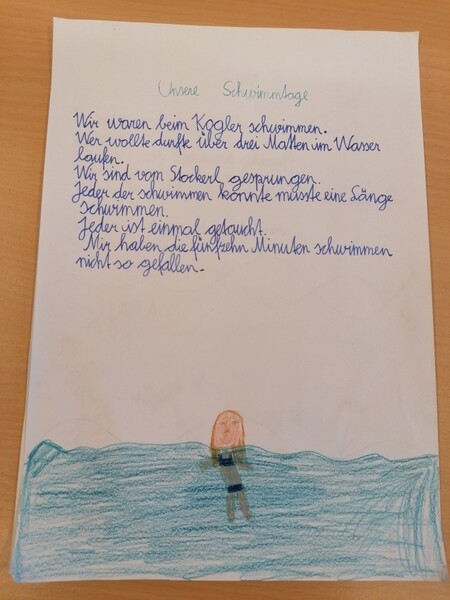 Unsere Schwimmtage
Wir waren beim Kogler schwimmen.
Wer wollte durfte über drei Matten im Wasser
laufen.
Wir sind vom Stockerl gesprungen.
Jeder der schwimmen konnte musste eine Länge
schwimmen.
Jeder ist einmal getaucht.
Mir haben die fünfzehn Minuten schwimmen
nicht so gefallen.